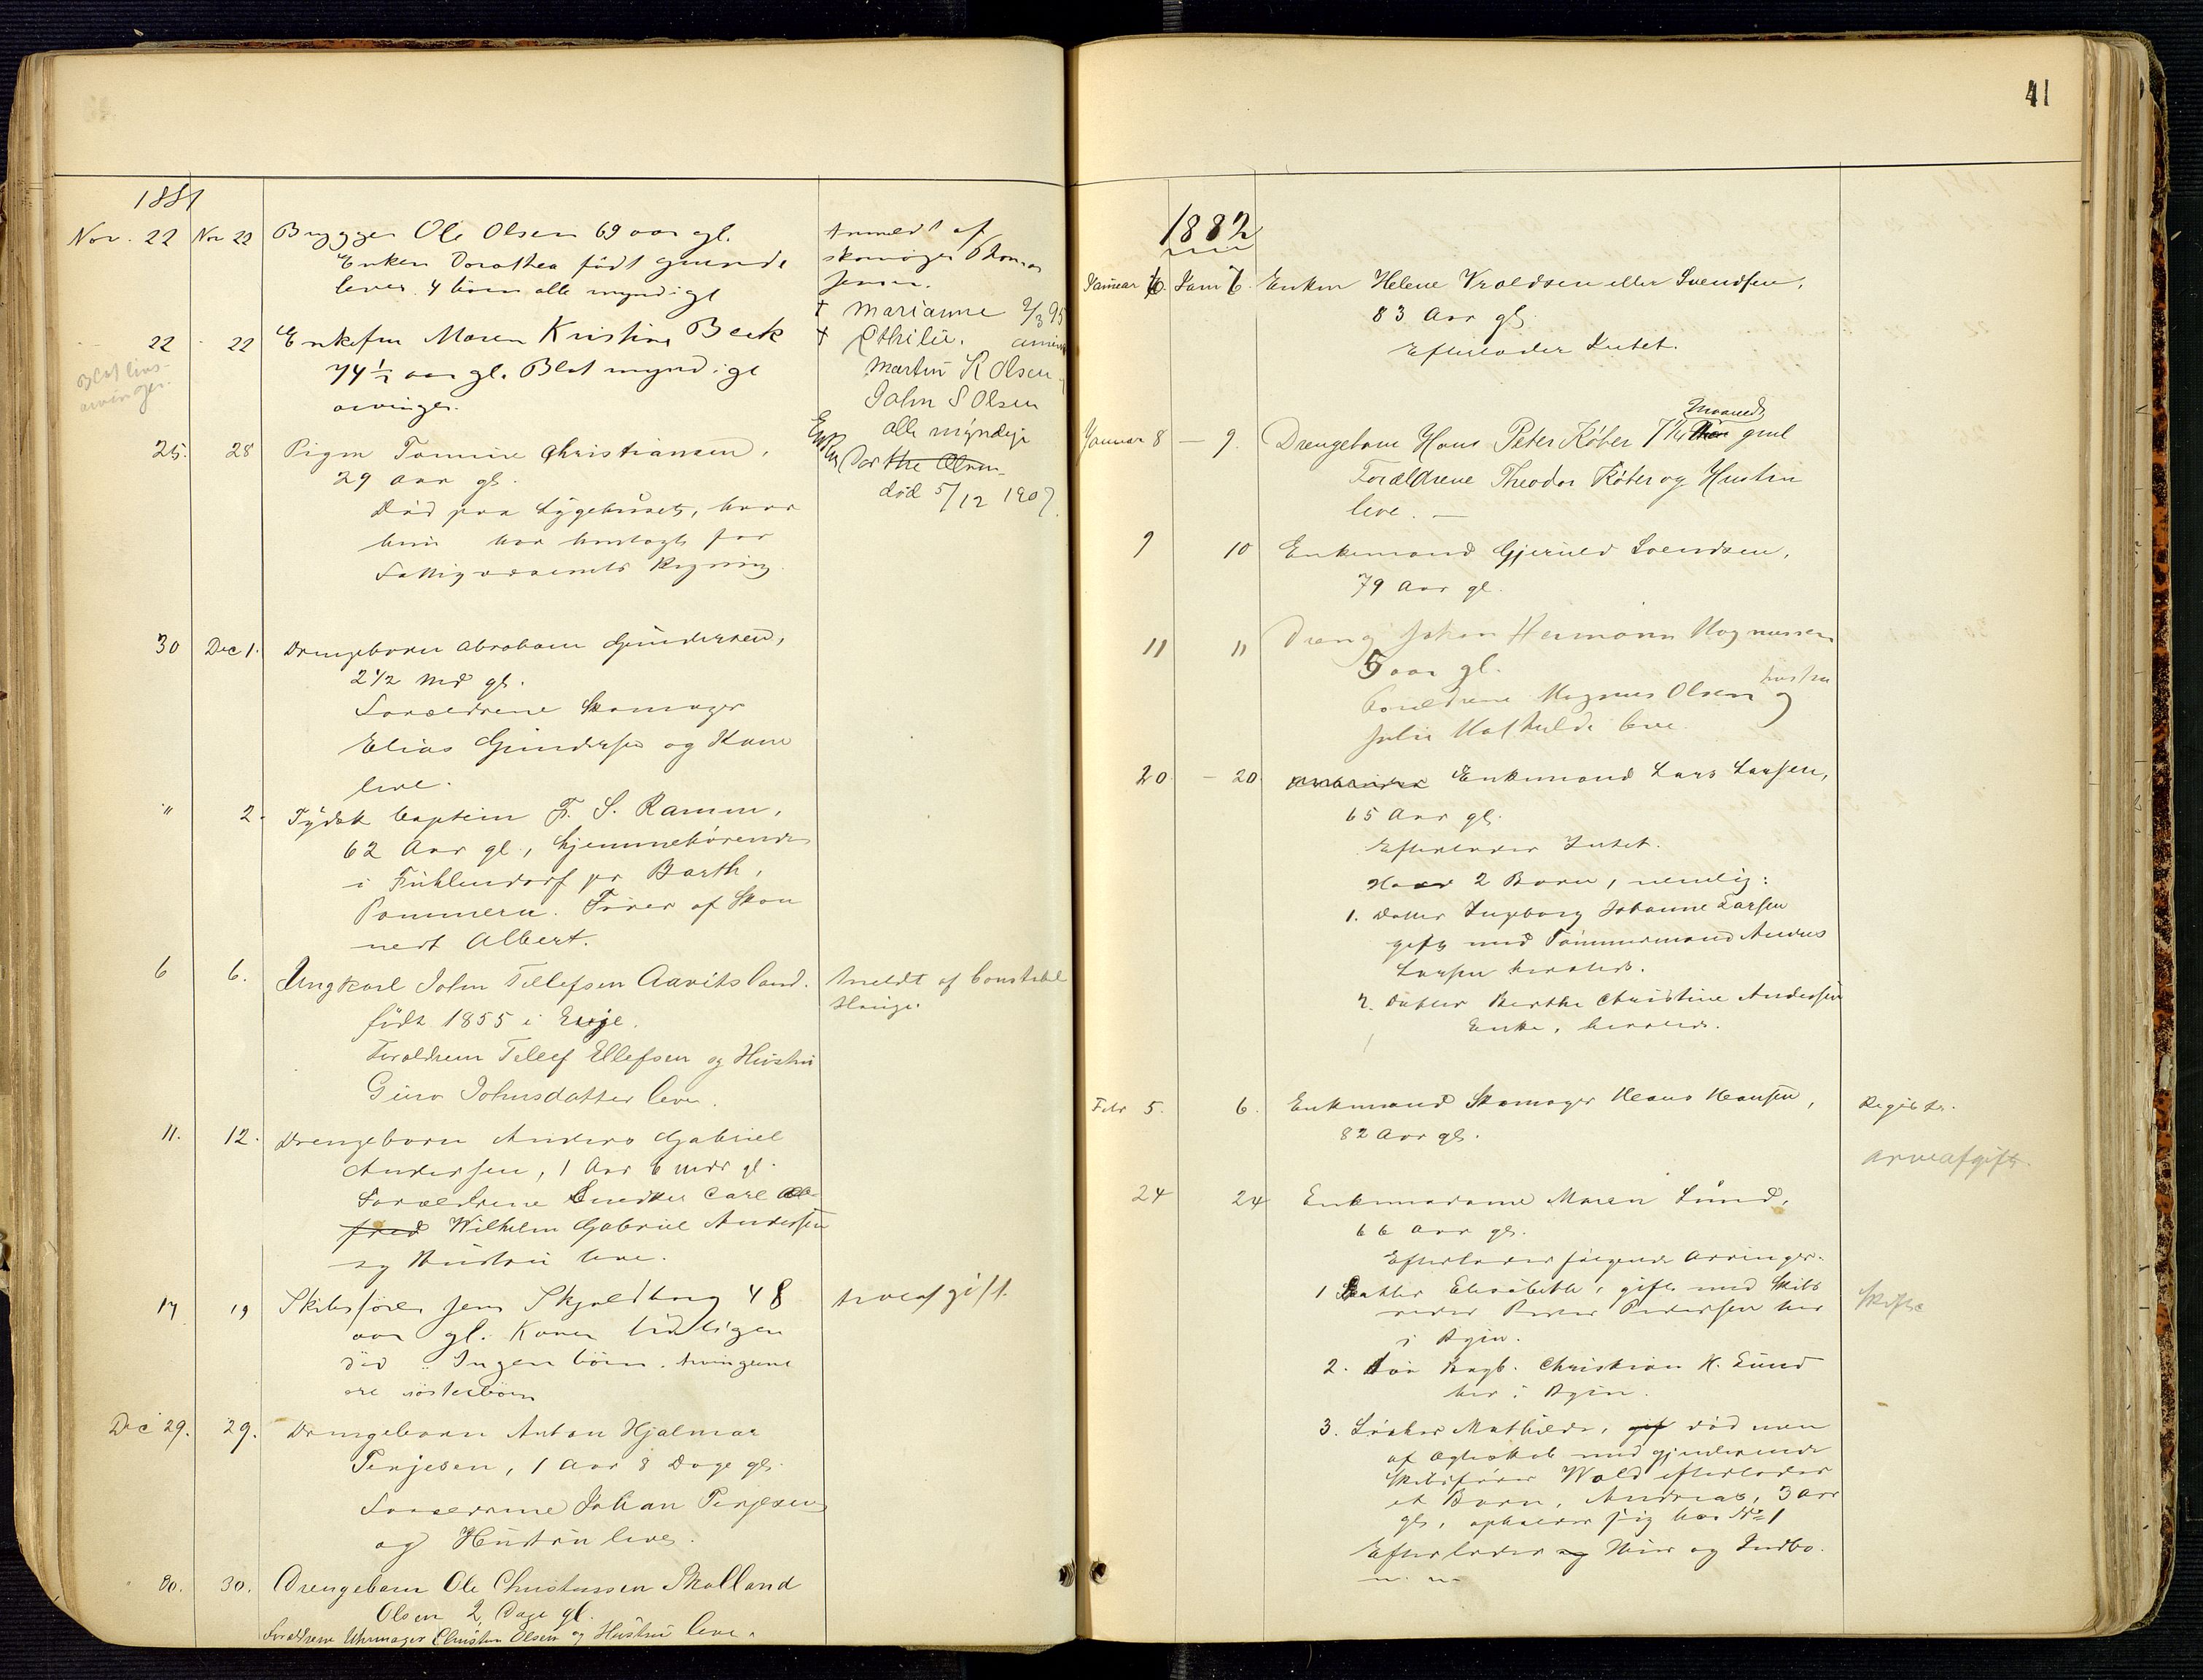 1881
Nov. 22 Nov 22 Brygger Ole Olsen 69 aar gl. Anmeldt af
Enken Dorothea født skomager Thomas
lever. 4 børn alle myndige Jensen.
† Marianne 2/3 95
22 22 Enkefru Maren Kristine Beck † Othilie.
Blot livs-
arvinger.
74 ½ aar gl. Blot myndige Martin K Olsen
arvinger. John S Olsen
alle myndige
25. 28 Pigen Tomine Christiansen, Enken Dorthe Olsen
29 Aar gl. død 5/12 1907.
Død paa Sygehuset, hvor
hun var indlagt for
Fattigvæsenets Regning.
30 Dec 1. Drengebarn Abraham Gundersen,
2 1/2 Md gl.
Forældrene Skomager
Elias Gundersen og Kone
leve.
" 2. Tydsk Captein F. S. Ramm,
62 Aar gl., hjemmehørende
i Fuhlendorf pr Barth,
Pommern. Fører af Skon
nert Albert.
6 6. Ungkarl John Tellefsen Aavitsland. Anmeldt af Constabel
født 1855 i Evje. Hauge.
Forældrene Tellef Ellefsen og Hustru
Guro Johnsdatter leve.
11. 12. Drengebarn Anders Gabriel
Andersen, 1 Aar 6 mdr gl.
Forældrene Snedker Carl
Wilhelm Gabriel Andersen
og Hustru leve.
17 19 Skibsfører Jens Skjoldborg 48 Arveafgift
aar gl. Konen tidligere
død. Ingen børn. Arvingerne
ere søsterbørn
Dec 29. 29. Drengebarn Anton Hjalmar
Terjesen, 1 Aar 8 Dage gl.
Forældrene Johan Terjesen
og Hustru leve.
30. 30. Drengebarn Ole Christensen Skolland
Olsen 2 Dage gl.
Forældrene Uhrmager Christen Olsen og Hustru leve.
41
1882
Januar 6. Jan 6. Enken Helene Vroldsen eller Svendsen,
83 Aar gl.
Efterlader Intet.
Januar 8 — 9. Drengebarn Hans Peter Köber 7 Maaneder gml
Forældrene Theodor Köber og Hustru
leve. —
9 10 Enkemand Gjeruld Svendsen,
79 Aar gl.
11 11 Dreng Johan Hermann Magnussen
5 aar gl.
Forældrene Magnus Olsen og hustru
Julie Mathilde leve
20 — 20. Enkemand Lars Larsen,
65 Aar gl.
Efterlader Intet.
Har 2 Børn, nemlig:
1. Datter Ingeborg Johanne Larsen
gift med Tømmermand Andreas
Larsen hersteds.
2. Datter Berthe Christine Andersen
Enke, hersteds.
Febr 5. 6. Enkemand Skomager Hans Hansen, Registr.
82 Aar gl.
Arveafgift.
24 24 Enkemadame Maren Lund,
66 Aar gl.
Efterlader følgende Arvinger.
1 Datter Elisabeth, gift med Skibs Skifte
reder Pedersen her
i Byen.
2. Søn Bogb. Christian H. Lund
her i Byen.
3. Datter Mathilde, død men
af Ægteskab med gjenlevende
Skibsfører Wold efterlader
et Barn, Andreas, 3 Aar
gl, opholder sig hos No 1
Efterlader Huus og Indbo.